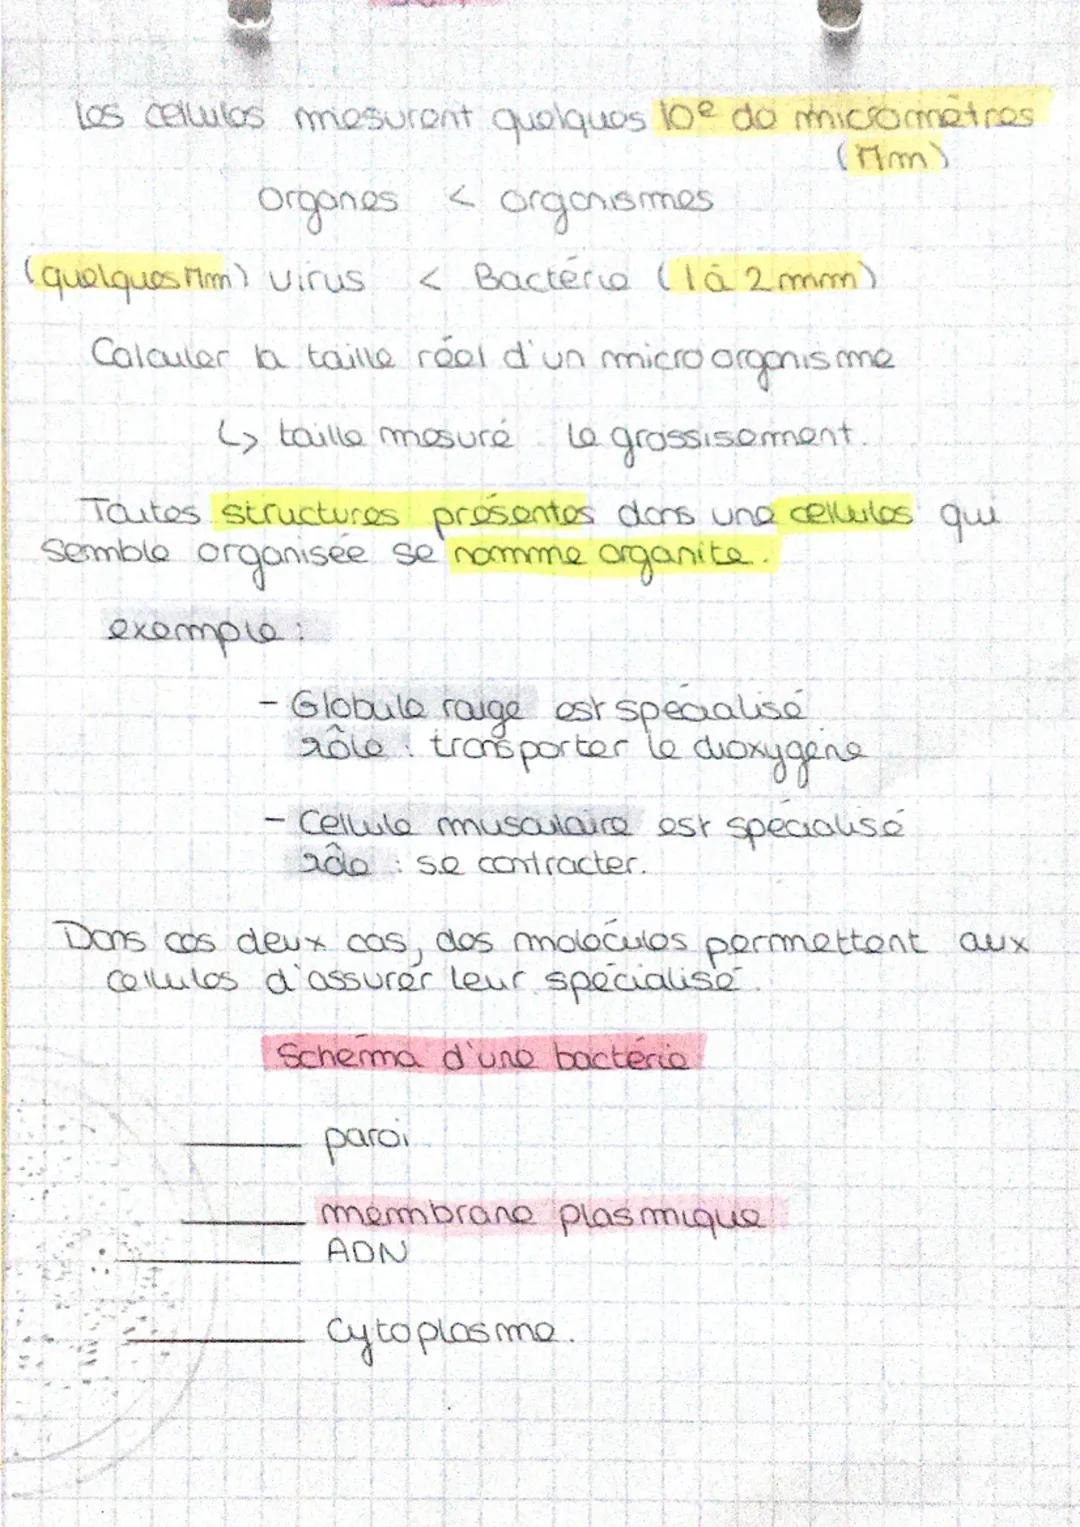 Les cellules mesurent quelques 10e de micromètres
(Mm)
Organes < organismes
(quelques Mm) virus < Bactérie (1 à 2 mm)
Calculer la taille réel d'un micro organisme
↳ taille mesuré le grossisement.
Toutes structures présentes dans une cellules qui
semble organisée se nomme organite.
exemple :
- Globule rouge est spécialisé
rôle : transporter le dioxygène
- Cellule musculaire est spécialisé
rôle : se contracter.
Dans ces deux cas, des molécules permettent aux
cellules d'assurer leur spécialisé.
Schéma d'une bactérie
paroi
membrane plasmique
ADN
Cytoplasme.